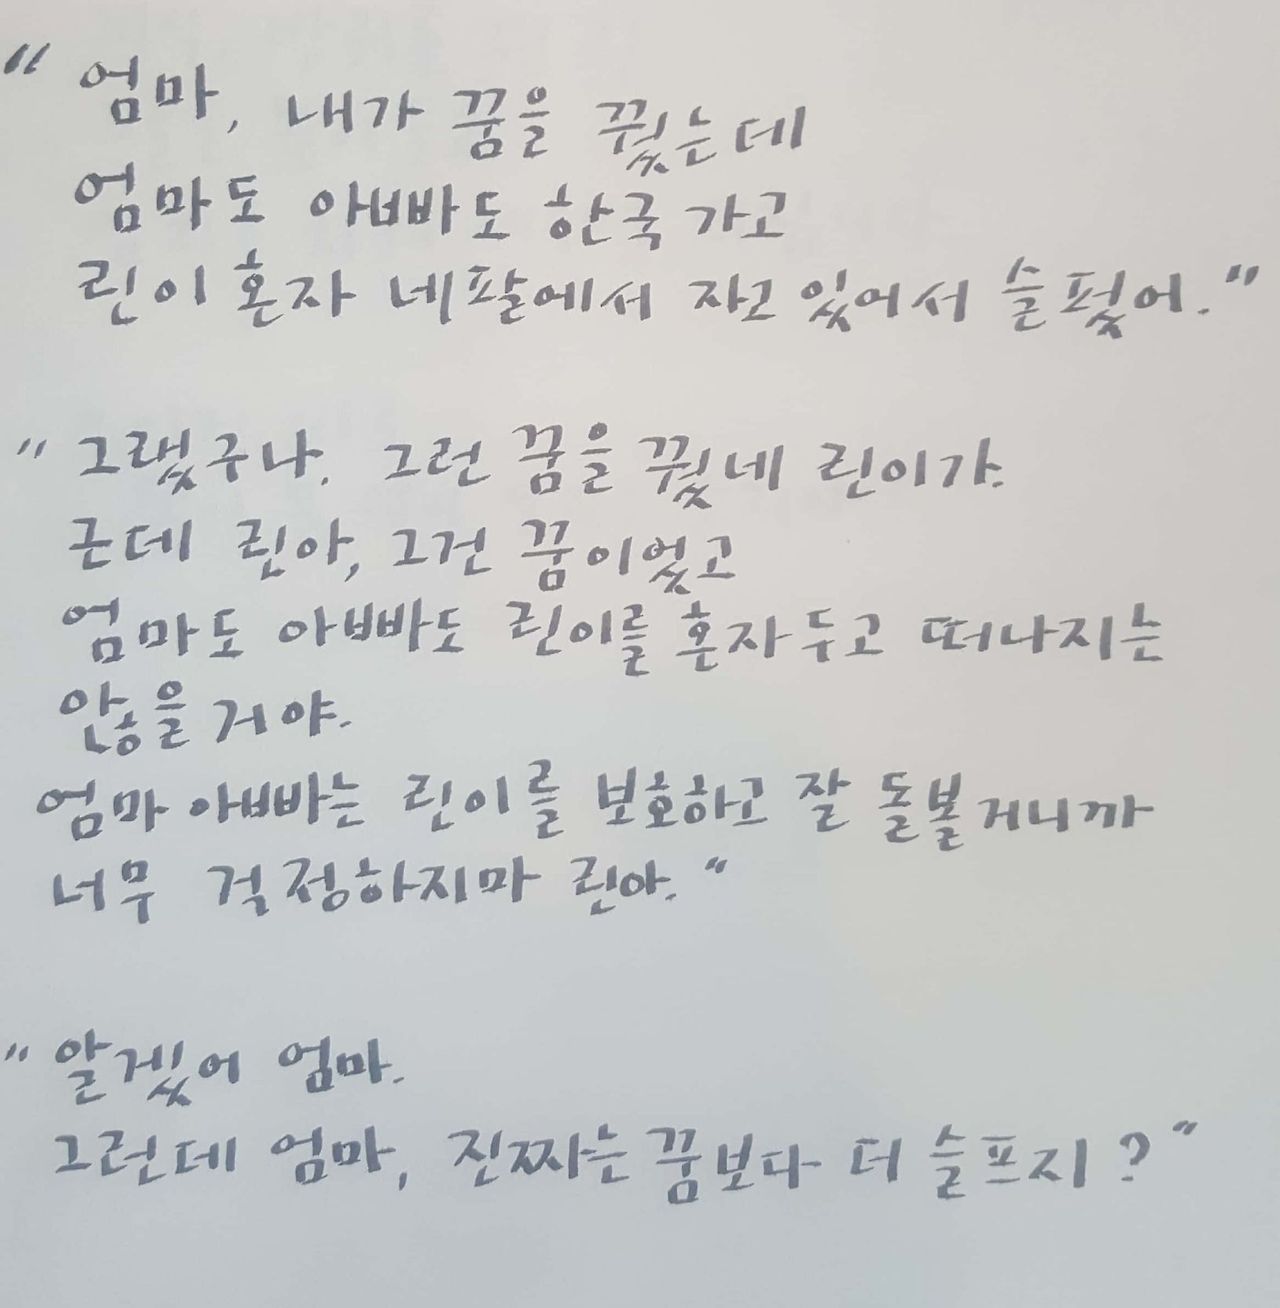 " 엄마, 내가 꿈을 꿨는데
엄마도 아빠도 한국 가고
린이 혼자 네팔에서 자고 있어서 슬펐어."
" 그랬구나. 그런 꿈을 꿨네 린이가.
근데 린아, 그건 꿈이었고
엄마도 아빠도 린이를 혼자 두고 떠나지는
않을 거야.
엄마 아빠는 린이를 보호하고 잘 돌볼거니까
너무 걱정하지마 린아."
" 알겠어 엄마.
그런데 엄마, 진짜는 꿈보다 더 슬프지?"